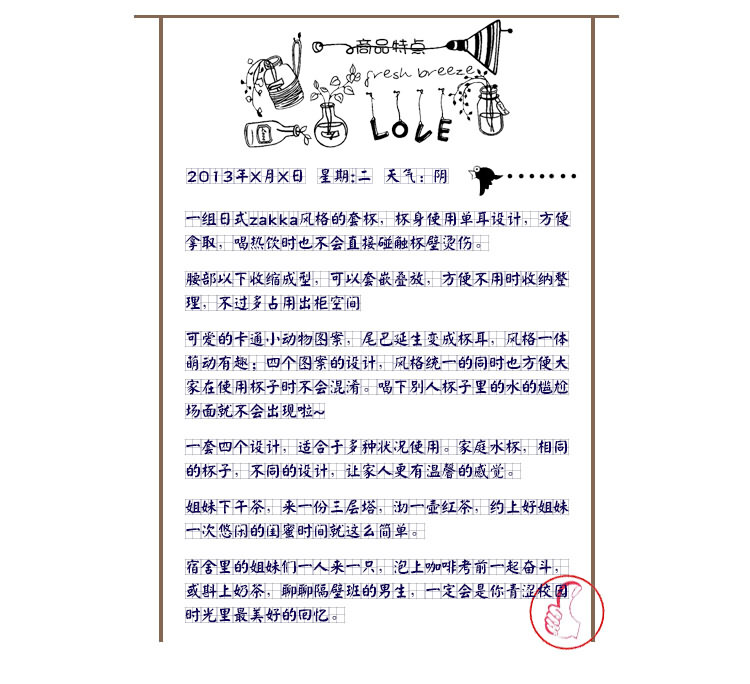 商品特点
fresh breeze
LOVE
2013年X月X日 星期:二 天气:阴
一组日式zakka风格的套杯，杯身使用单耳设计，方便
拿取，喝热饮时也不会直接碰触杯壁烫伤。
腰部以下收缩成型，可以套嵌叠放，方便不用时收纳整
理，不过多占用出柜空间
可爱的卡通小动物图案，尾巴延生变成杯耳，风格一体
萌动有趣；四个图案的设计，风格统一的同时也方便大
家在使用杯子时不会混淆。喝下别人杯子里的水的尴尬
场面就不会出现啦~
一套四个设计，适合于多种状况使用。家庭水杯，相同
的杯子，不同的设计，让家人更有温馨的感觉。
姐妹下午茶，来一份三层塔，沏一壶红茶，约上好姐妹
一次悠闲的闺蜜时间就这么简单。
宿舍里的姐妹们一人来一只，泡上咖啡考前一起奋斗，
或斟上奶茶，聊聊隔壁班的男生，一定会是你青涩校园
时光里最美好的回忆。